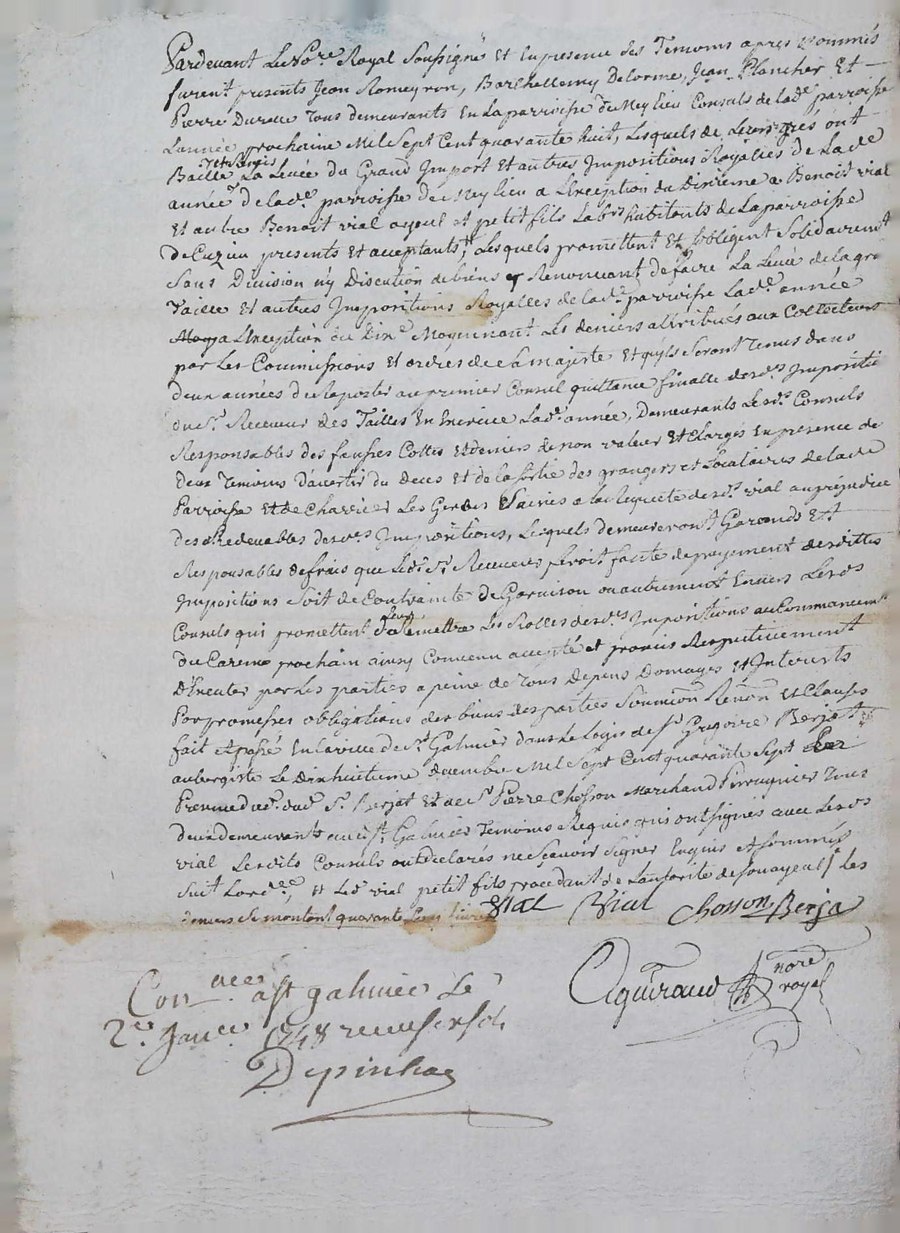 Pardevant Le Nore Royal Soussigné Et En presence des Temoins apres Nommés
furent presents Jean Romeyron, Barthellemy Delorme, Jean Plancher Et
Pierre Duron Tous demeurants En La parroisse de Meylieu Consuls de lade parroisse
L'année prochaine Mil Sept Cent quarante huit, Lesquels de Leurs grés ont
Baille La Levée du Grand Import Et autres Impositions Royalles de La de
année de lade parroisse de Meylieu a L'Exception du Dixieme a Benoit vial
Et autre Benoit vial ayeul et petit fils Labrs habitants de La parroisse
de Cuzieu presents Et acceptants, Lesquels promettent Et sobligent Solidairemt
Sans Division ny Discution de biens y Renoncant de faire La Levée de la gre
Taille Et autres Impositions Royalles de lade parroisse Lade année
a L'Exception du Dixe Moyennant Les deniers attribues aux Collecteurs
par Les Commissions Et ordres de sa majeste Et quils Seront Tenus dans
deux années de Raporter au premier Consul quittance finalle desds Impositi
du Sr Receveur des Tailles En Exercice Lade année, Demeurants Lesds Consuls
Responsables des fausses Cottes Et deniers de non valeur Et Chargés En presence de
deux Temoins D'avertir du deces Et de la sortie des grangers et Locataires de lade
Parroisse Et de Charier Les Gerbes Saisies a la Requete desds vial au prejudice
des Redevables desdes Impositions, Lesquels demeureront Garends Et
Responsables de frais que Leds Sr Receveur feroit faute de payement desdittes
Impositions Soit de Contrainte de Garnison ou autrement Envers Lesds
Consuls qui promettent de Leur Remettre Les Rolles desdes Impositions au Commancemt
du Careme prochain ainsy Convenu accepté et promis Respectivement
D'Executer par Les parties a peine de Tous Depens Domages Et Interests
Par promesses obligations des biens des parties Soumion Renon Et Clauses
fait Et passé En La ville de St Galmier dans Le Logis de Sr Gregoire Berjat
aubergiste Le Dixhuitieme decembre Mil Sept Cent quarante Sept
Presence dud. Sr Berjat Et de Sr Pierre Chosson Marchand Perruquier Tous
deux demeurants aud St Galmier Temoins Requis qui ont signés avec Lesds
vial Lesdits Consuls ont declarés ne Scavoir Signer Enquis Et sommés
Suit Lordce, Et Led vial petit fils procedant de L'autorité de son ayeul Les
deniers Se montent quarante livres
Vial Vial Chosson Berja
Aguiraud nore royal
Con a St galmier Le
2e Janer 1748 recu sols
Depinhac